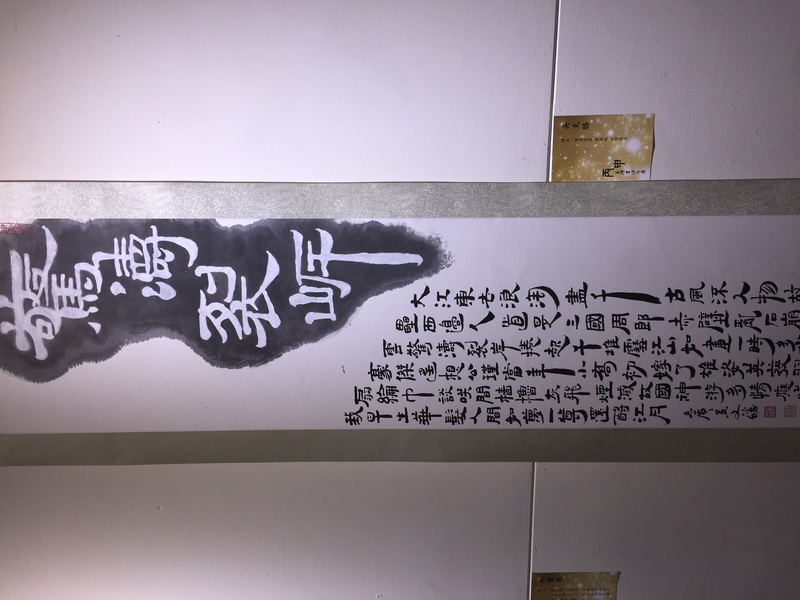 驚濤裂岸
大江東去浪淘盡千古風流人物故
壘西邊人道是三國周郎赤壁亂石崩
雲驚濤裂岸捲起千堆雪江山如畫一時多少
豪傑遙想公瑾當年小喬初嫁了雄姿英發羽
扇綸巾談笑間檣櫓灰飛煙滅故國神游多情應
我早生華髮人間如夢一尊還酹江月
丙申